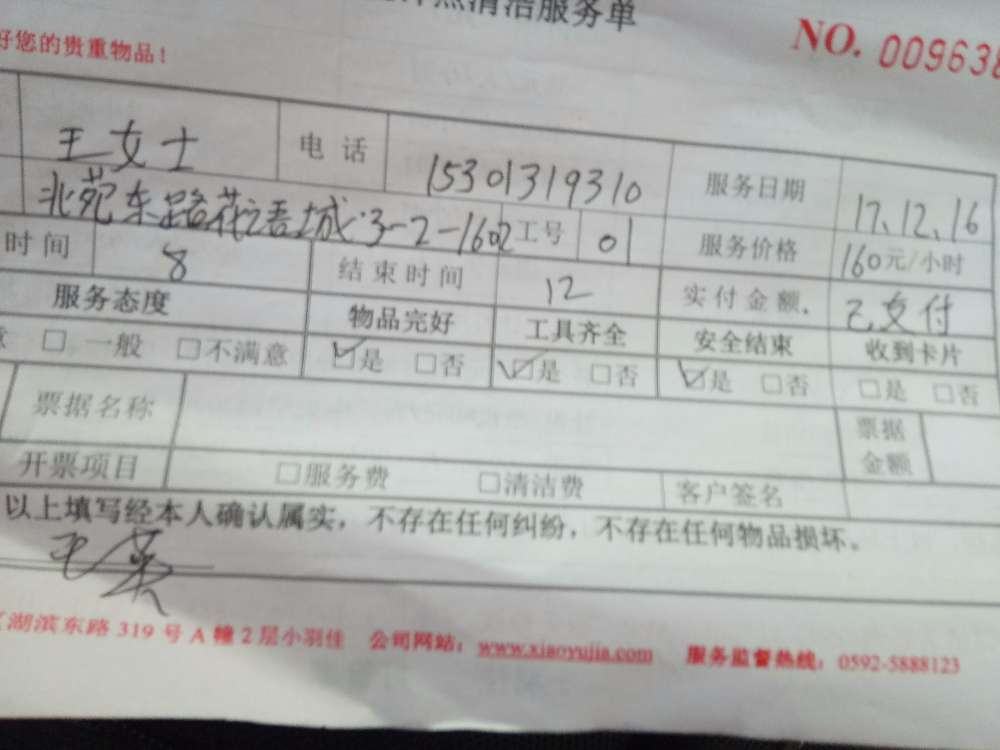 清洁服务单
好您的贵重物品!
NO. 009638
王女士 电话 15301319310 服务日期 17.12.16
北苑东路花语城3-2-1602 工号 01 服务价格 160元/小时
时间 8 结束时间 12 实付金额. 已支付
服务态度 物品完好 工具齐全 安全结束 收到卡片
意 □ 一般 □不满意 ☑是 □否 ☑是 □否 ☑是 □否 □是 □否
票据名称 票据金额
开票项目 □服务费 □清洁费 客户签名
以上填写经本人确认属实，不存在任何纠纷，不存在任何物品损坏。
湖滨东路 319 号 A 幢 2 层小羽佳 公司网站：www.xiaoyujia.com 服务监督热线：0592-5888123